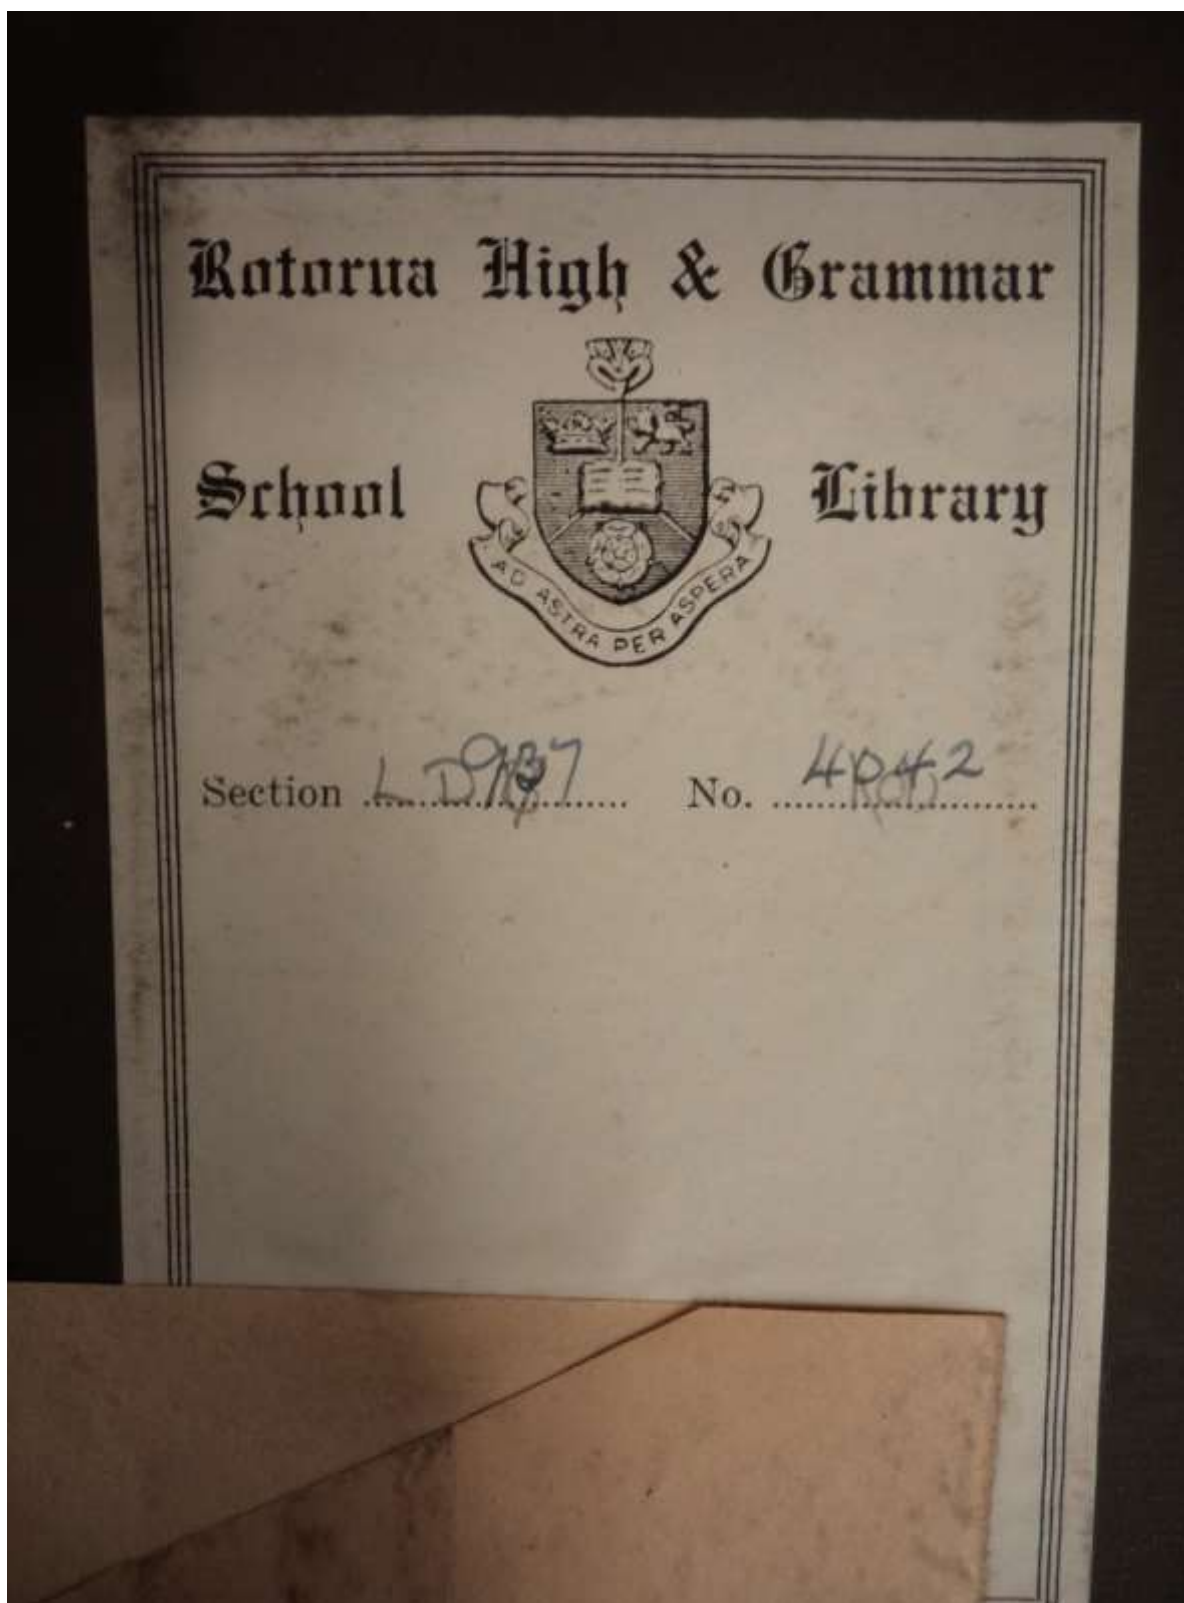 Rotorua High & Grammar
School Library
AD ASTRA PER ASPERA
Section L D937 No. 4042